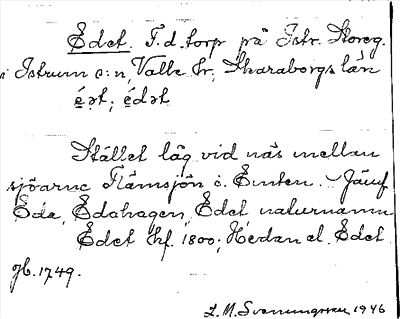 Edet. F.d. torp på Istr. Storeg.
i Istrum s:n, Valle hr, Skaraborgs län
é̱ǝt; é̱dǝt
Stället låg vid näs mellan
sjöarna Flämsjön o. Emten. - Jämf
Eda, Edahagen, Edet naturnamn
Edet hf. 1800; Hedan el. Edet
Jb. 1749.
1946